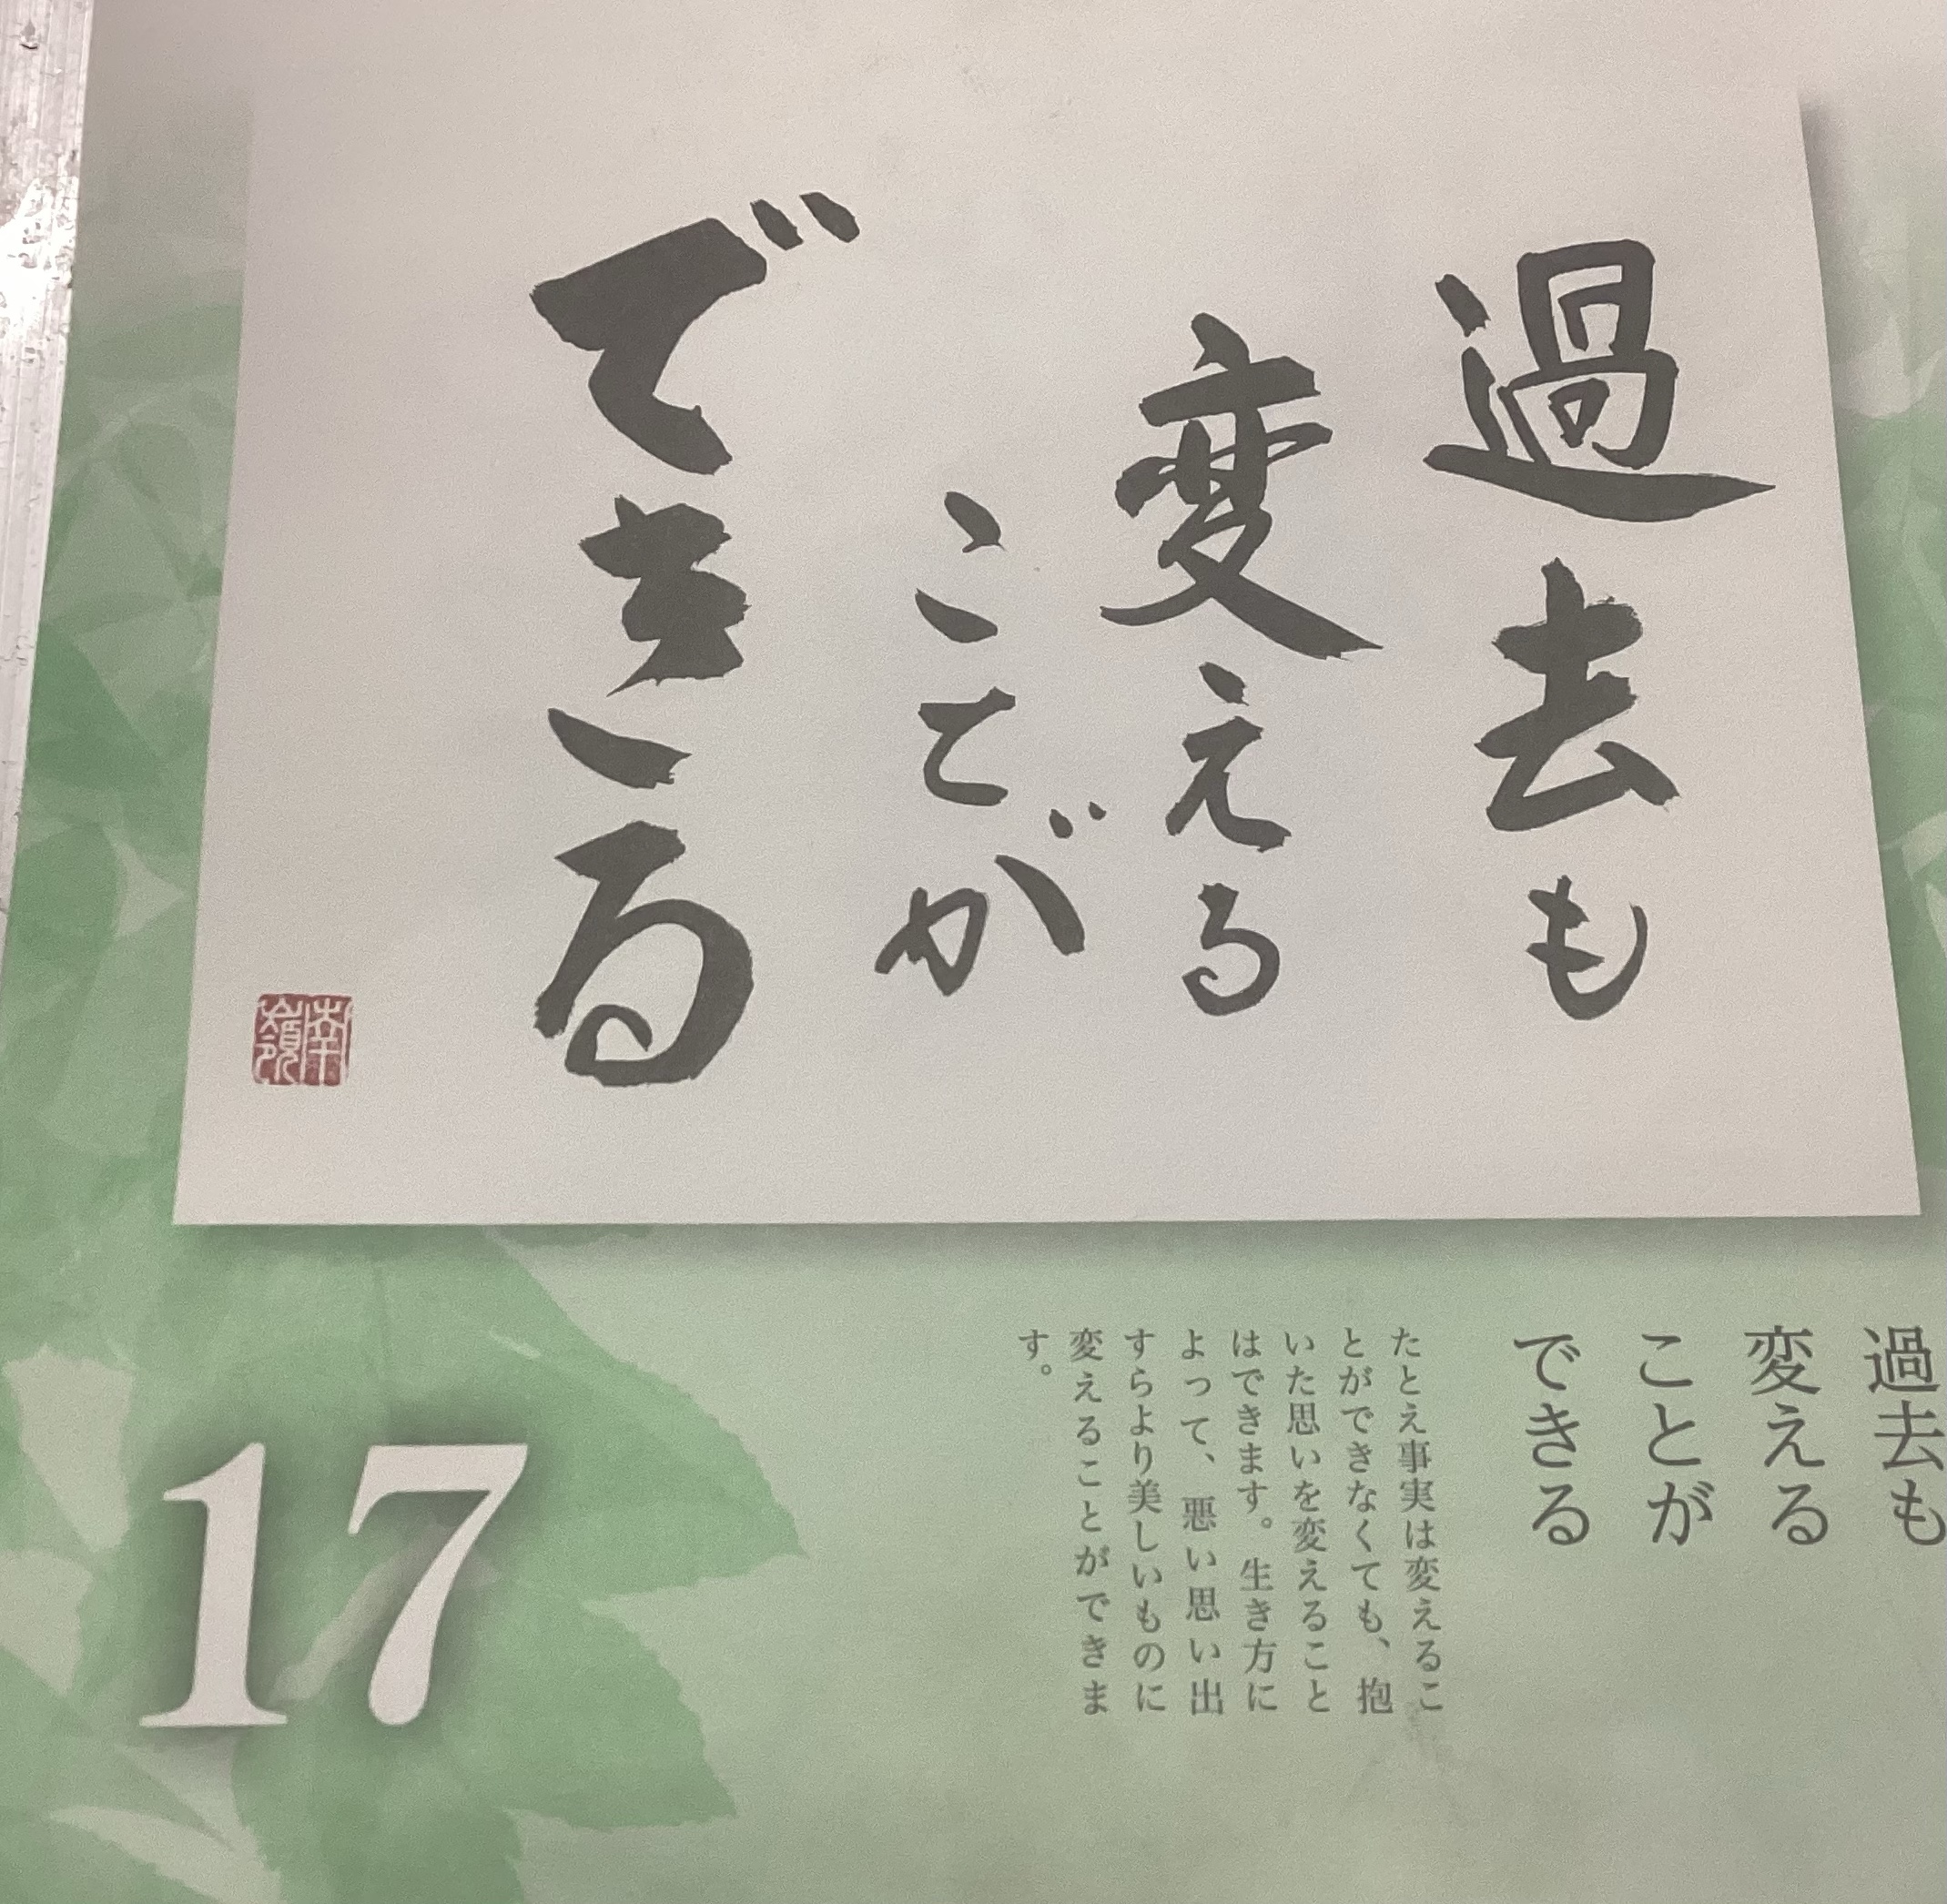 過去も
変える
ことが
できる
過去も
変える
ことが
できる
たとえ事実は変えるこ
とができなくても、抱
いた思いを変えること
はできます。生き方に
よって、悪い思い出
すらより美しいものに
変えることができま
す。
17